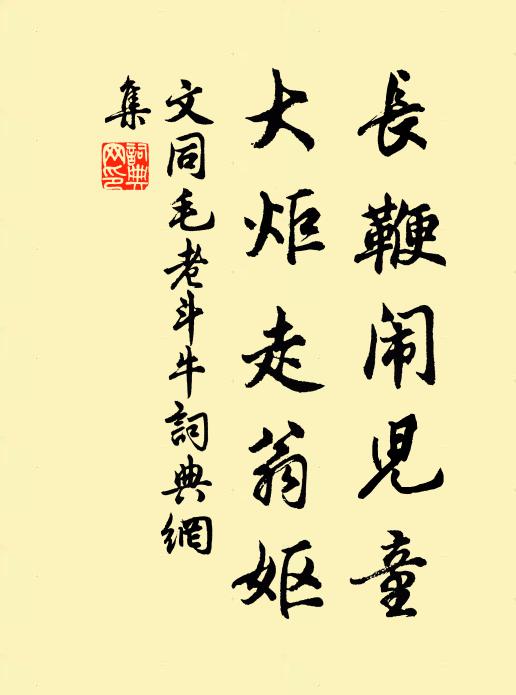 長鞭闹児童
大炬走翁妪
文同毛老斗牛詞典網
集
詞典網印